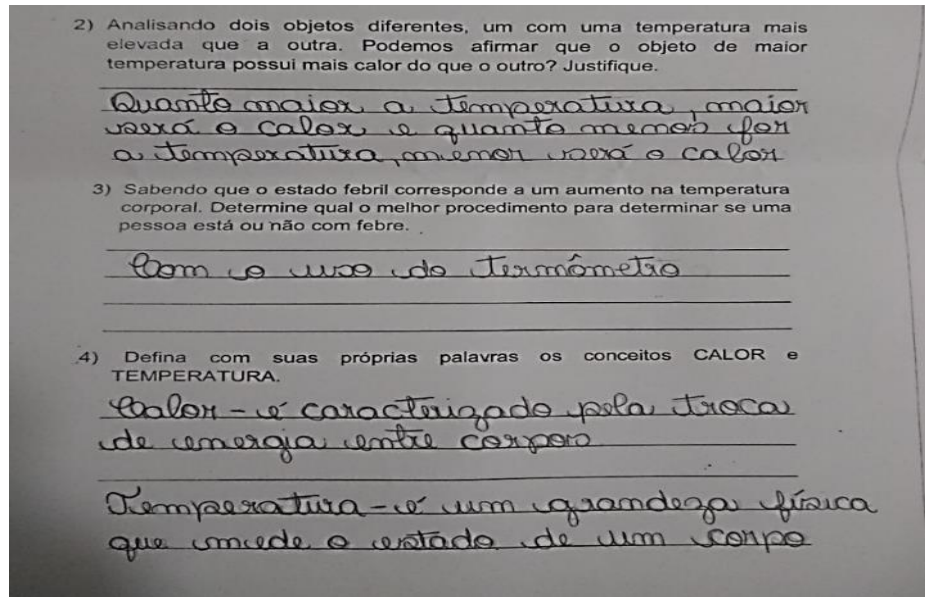 2) Analisando dois objetos diferentes, um com uma temperatura mais
elevada que a outra. Podemos afirmar que o objeto de maior
temperatura possui mais calor do que o outro? Justifique.
Quanto maior a temperatura, maior
será o calor e quanto menor for
a temperatura, menor será o calor
3) Sabendo que o estado febril corresponde a um aumento na temperatura
corporal. Determine qual o melhor procedimento para determinar se uma
pessoa está ou não com febre.
Com o uso do Termômetro
4) Defina com suas próprias palavras os conceitos CALOR e
TEMPERATURA.
Calor - é caracterizado pela troca
de energia entre corpos
Temperatura - é um grandeza física
que mede o estado de um corpo